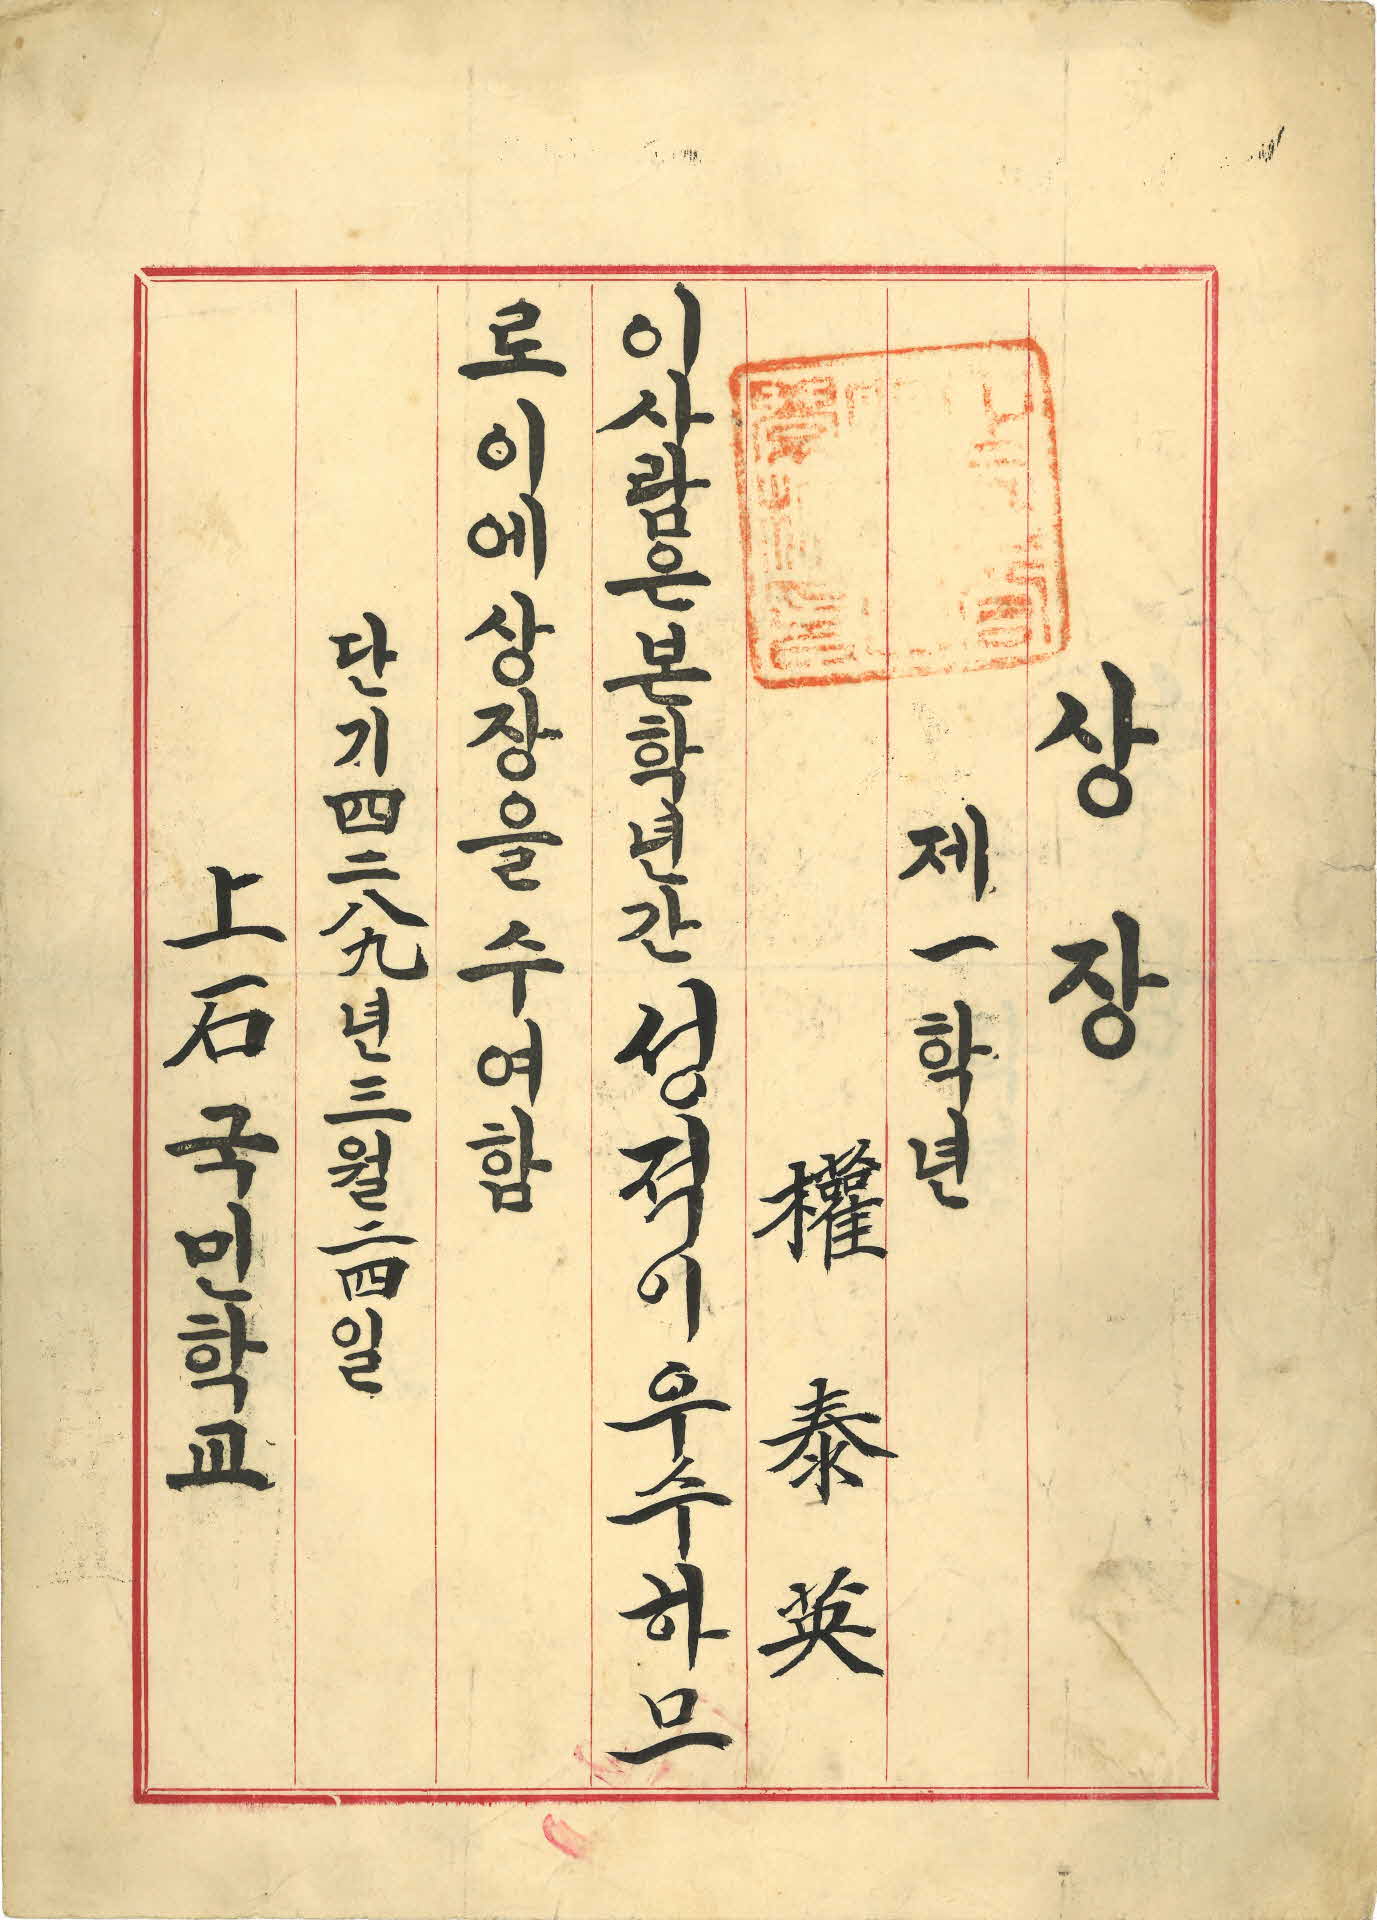 상장
제一학년
權泰英
이사람은본학년간성적이우수하므
로이에상장을수여함
단기四二八九년三월二四일
上石국민학교